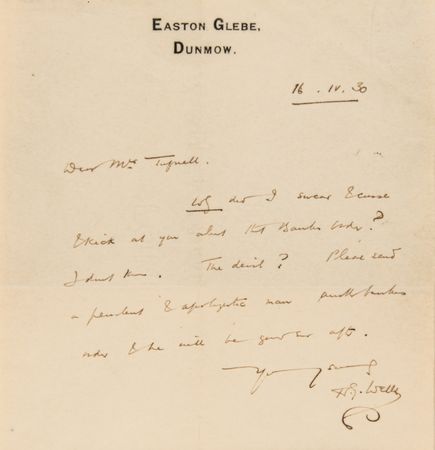 EASTON GLEBE,
DUNMOW.
16 . IV . 30
Dear Mrs Tufnell.
Why did I swear & curse
& kick at you about that Bankers order?
I dont know. The devil? Please send
a penitent & apologetic man another bankers
order & he will be good ever after.
Yours
H.G. Wells